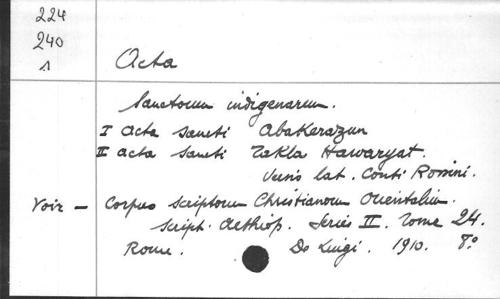 224
240
1
Acta
Sanctorum indigenarum.
I Acta Sancti Abakerazun
II acta Sancti Takla Hawaryat.
Versio lat. Conti Rossini.
Voir — Corpus Scriptorum Christianorum Orientalium.
Script. Aethiop. Series II. Tome 24.
Rome. De Luigi. 1910. 8º